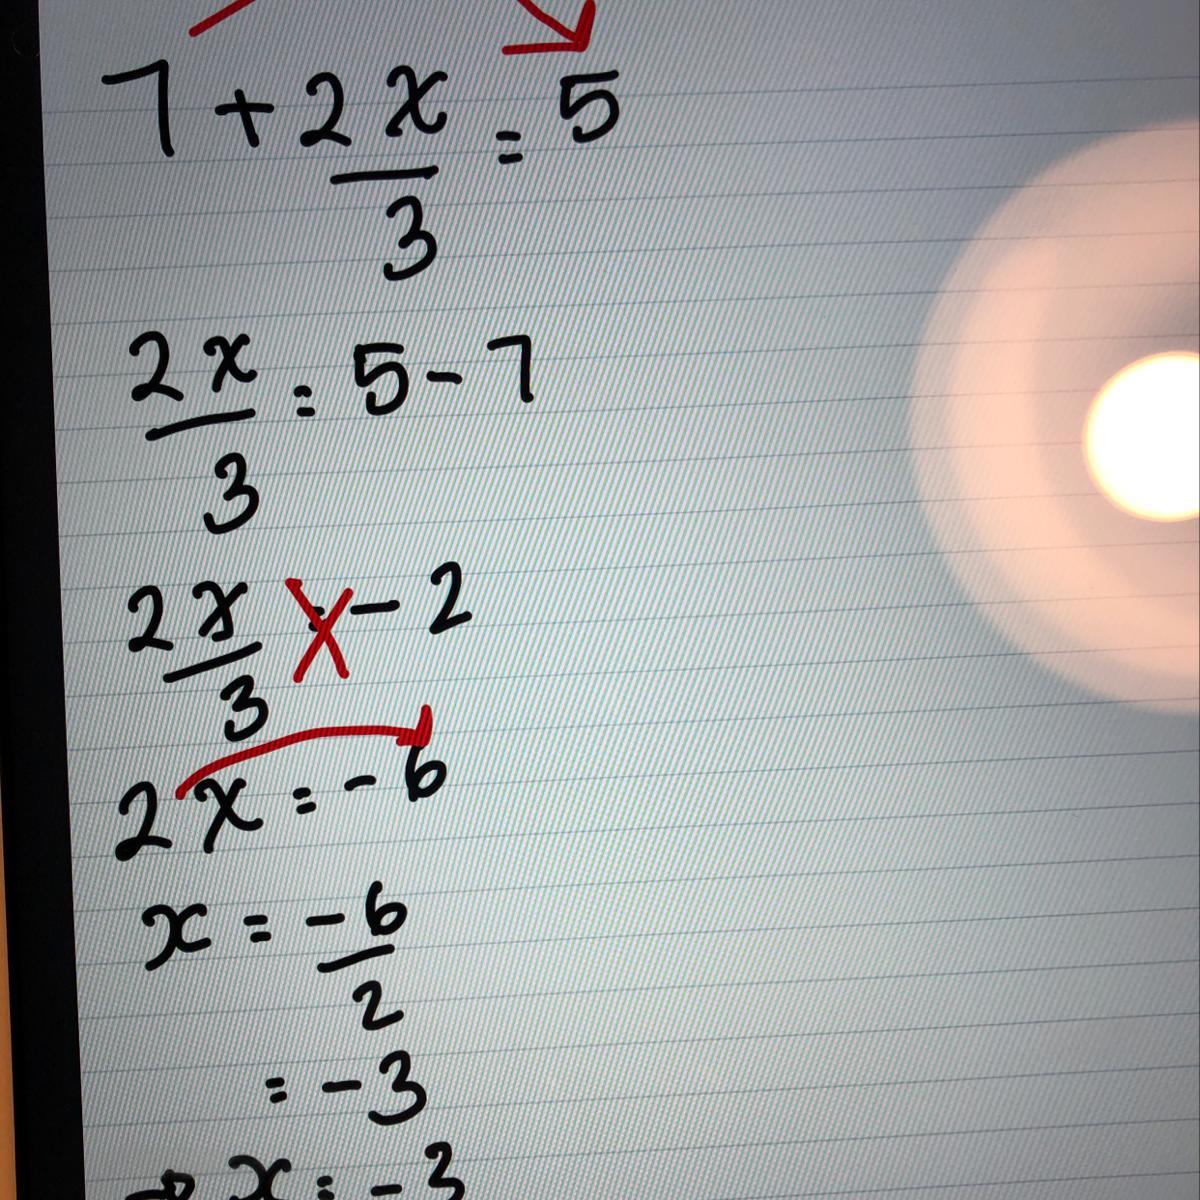 7 + 2x/3 = 5
2x/3 = 5 - 7
2x/3 = - 2
2x = - 6
x = - 6/2
= - 3
→ x = - 3